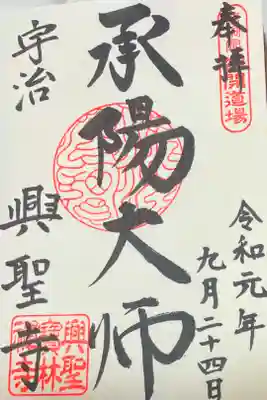 奉拝
開道場
令和元年
九月二十四日
承陽大師
宇治
興聖寺
興聖
林